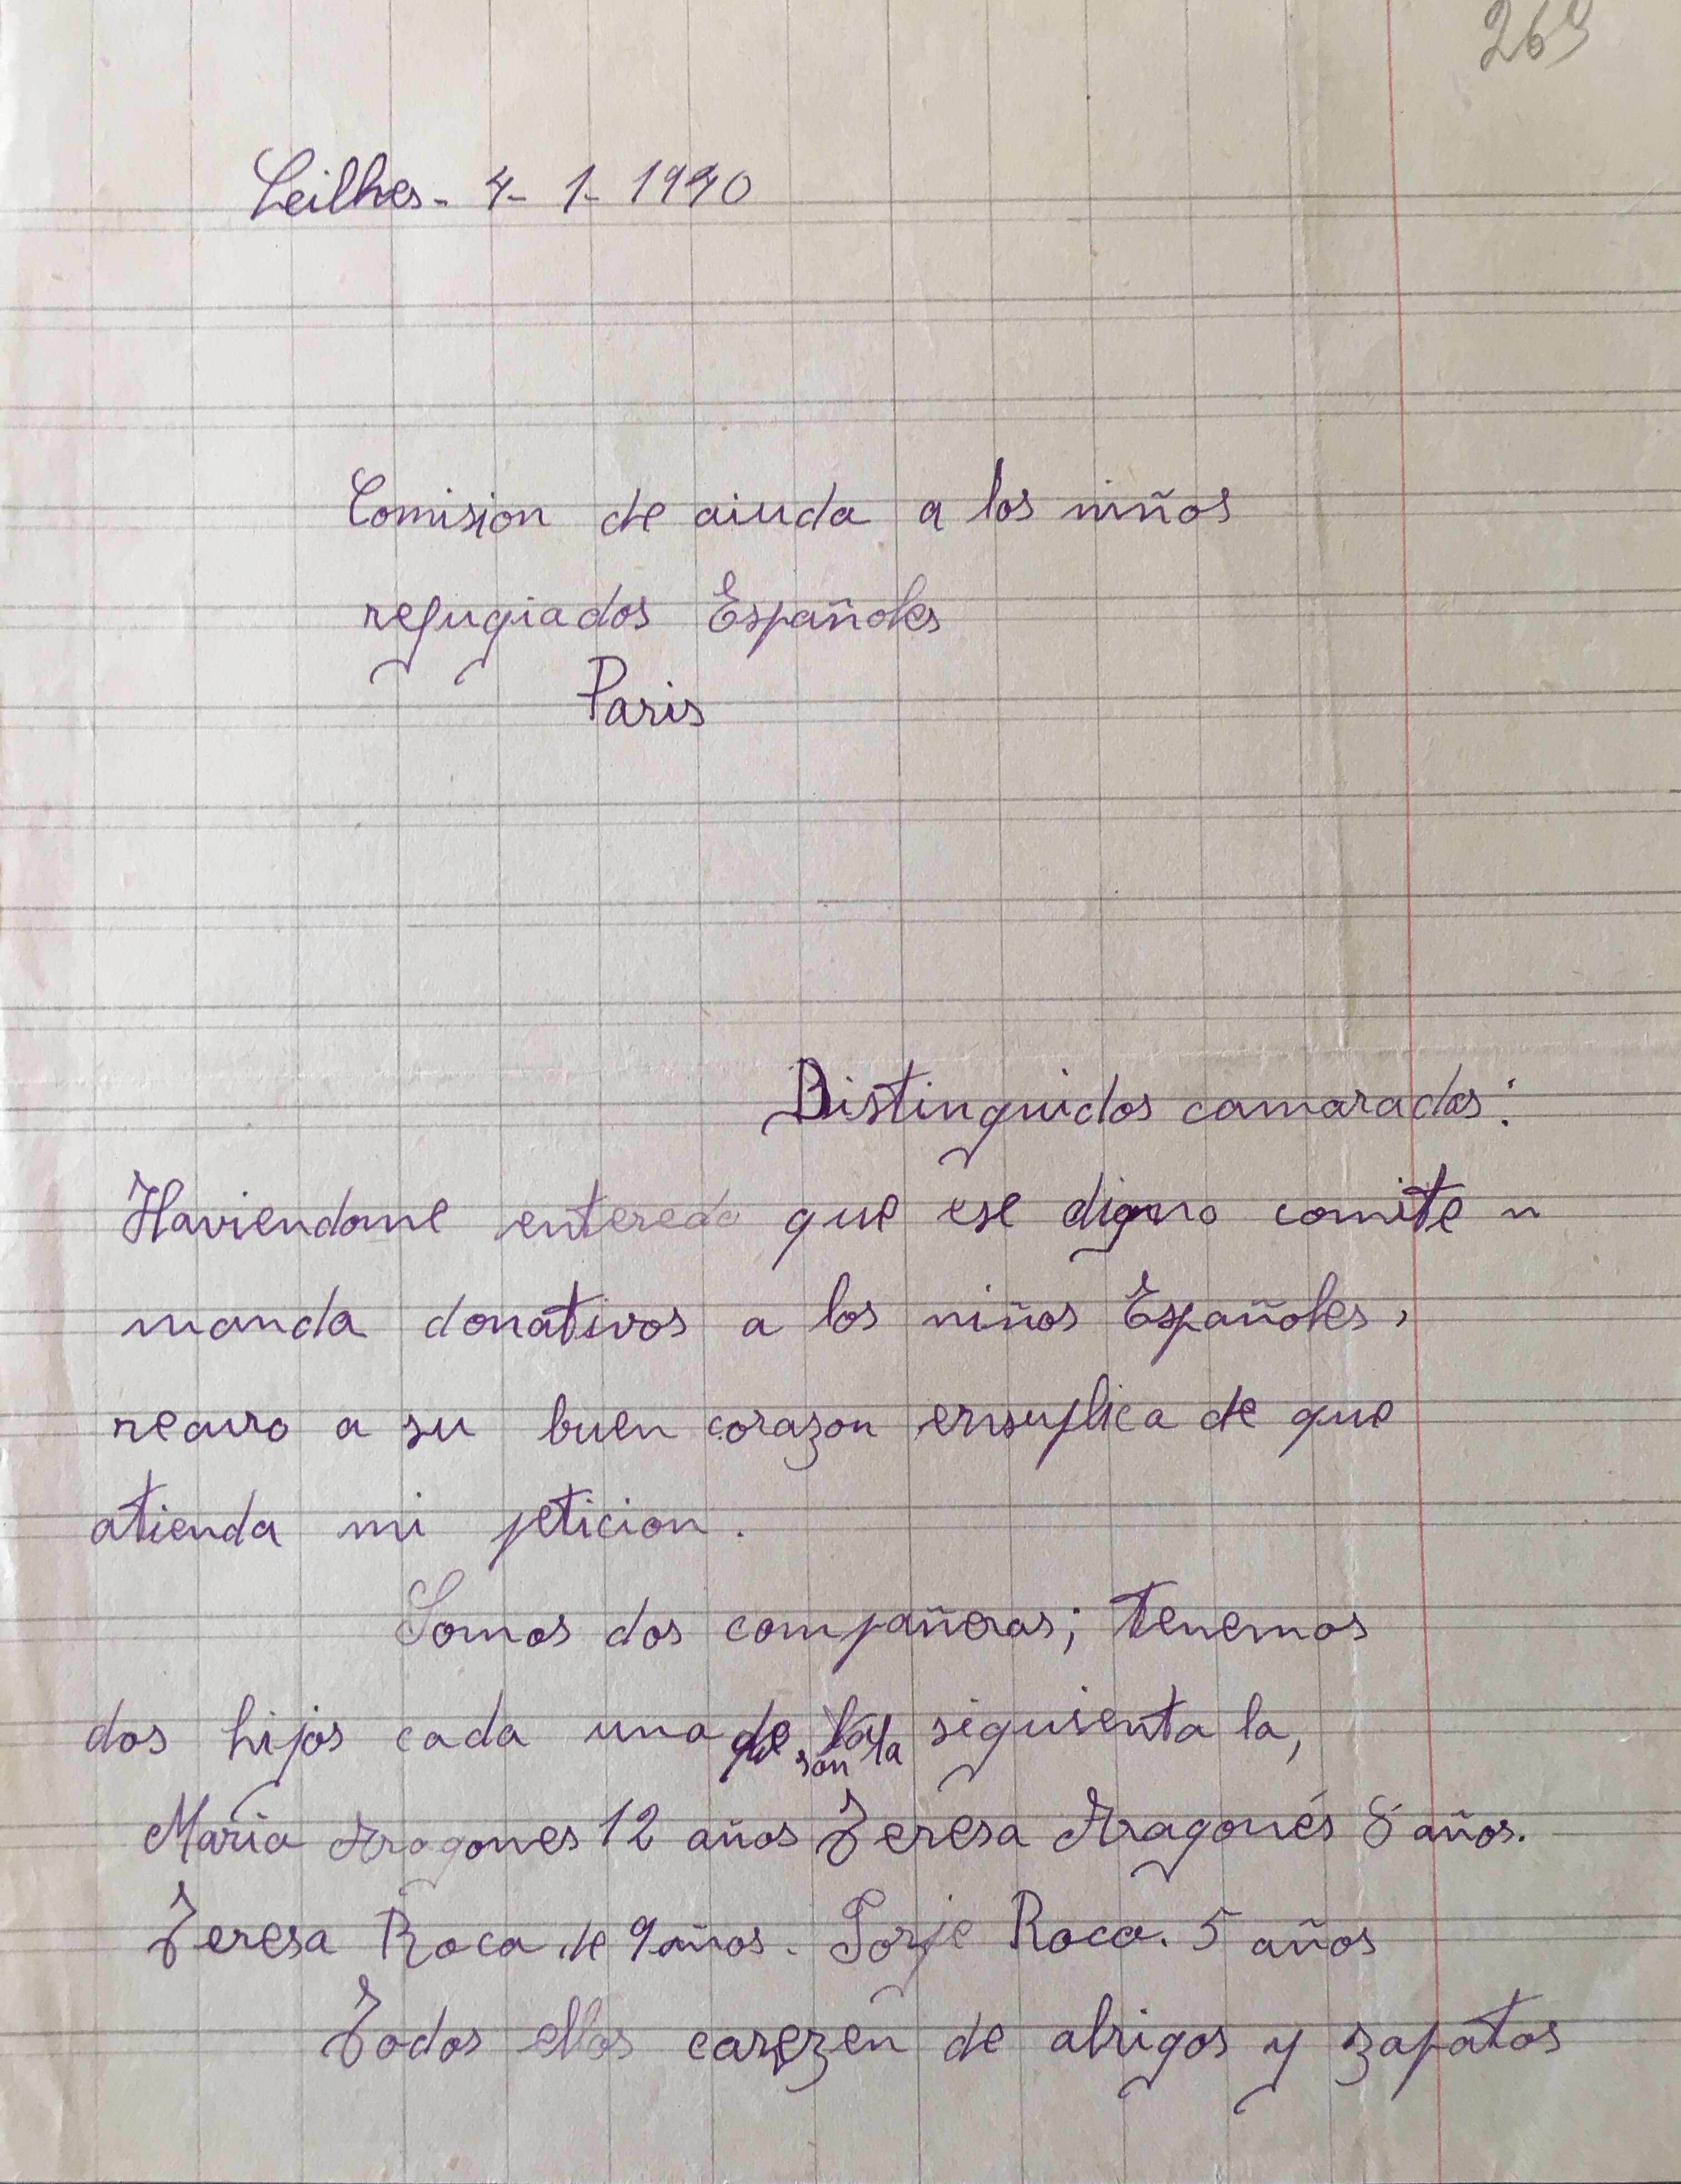 269
Leilhes - 4- 1- 1940
Comision de aiuda a los niños
refugiados Españoles
Paris
Distinguidos camaradas:
Haviendome enterado que ese digno comite
manda donativos a los niños Españoles,
recuro a su buen corazon ensuplica de que
atienda mi peticion.
Somos dos compañeras; tenemos
dos hijos cada una siguienta la,
son la
Maria Aragones 12 años Teresa Aragonés 8 años.
Teresa Roca de 9 años. Jorje Roca. 5 años
Todos ellos carezen de abrigos y zapatos